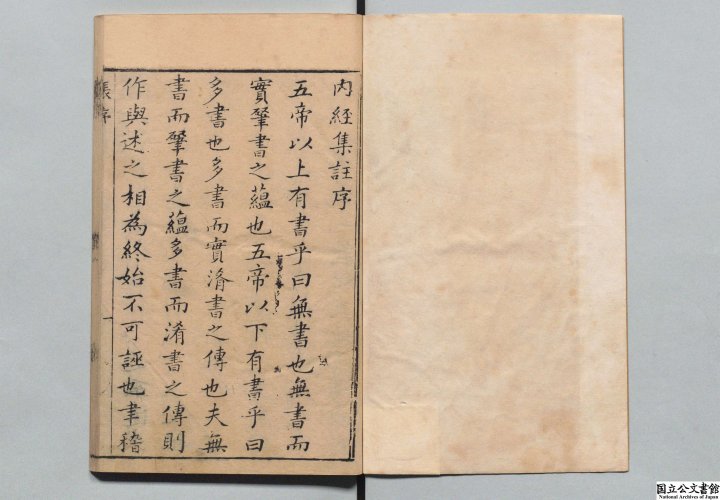 内經集註序
五帝以上有書乎曰無書也無書而
實肈書之蘊也五帝以下有書乎曰
多書也多書而實淆書之傳也夫無
書而肈書之蘊多書而淆書之傳則
作與述之相為終始不可誣也聿稽
張序
一
国立公文書館
National Archives of Japan